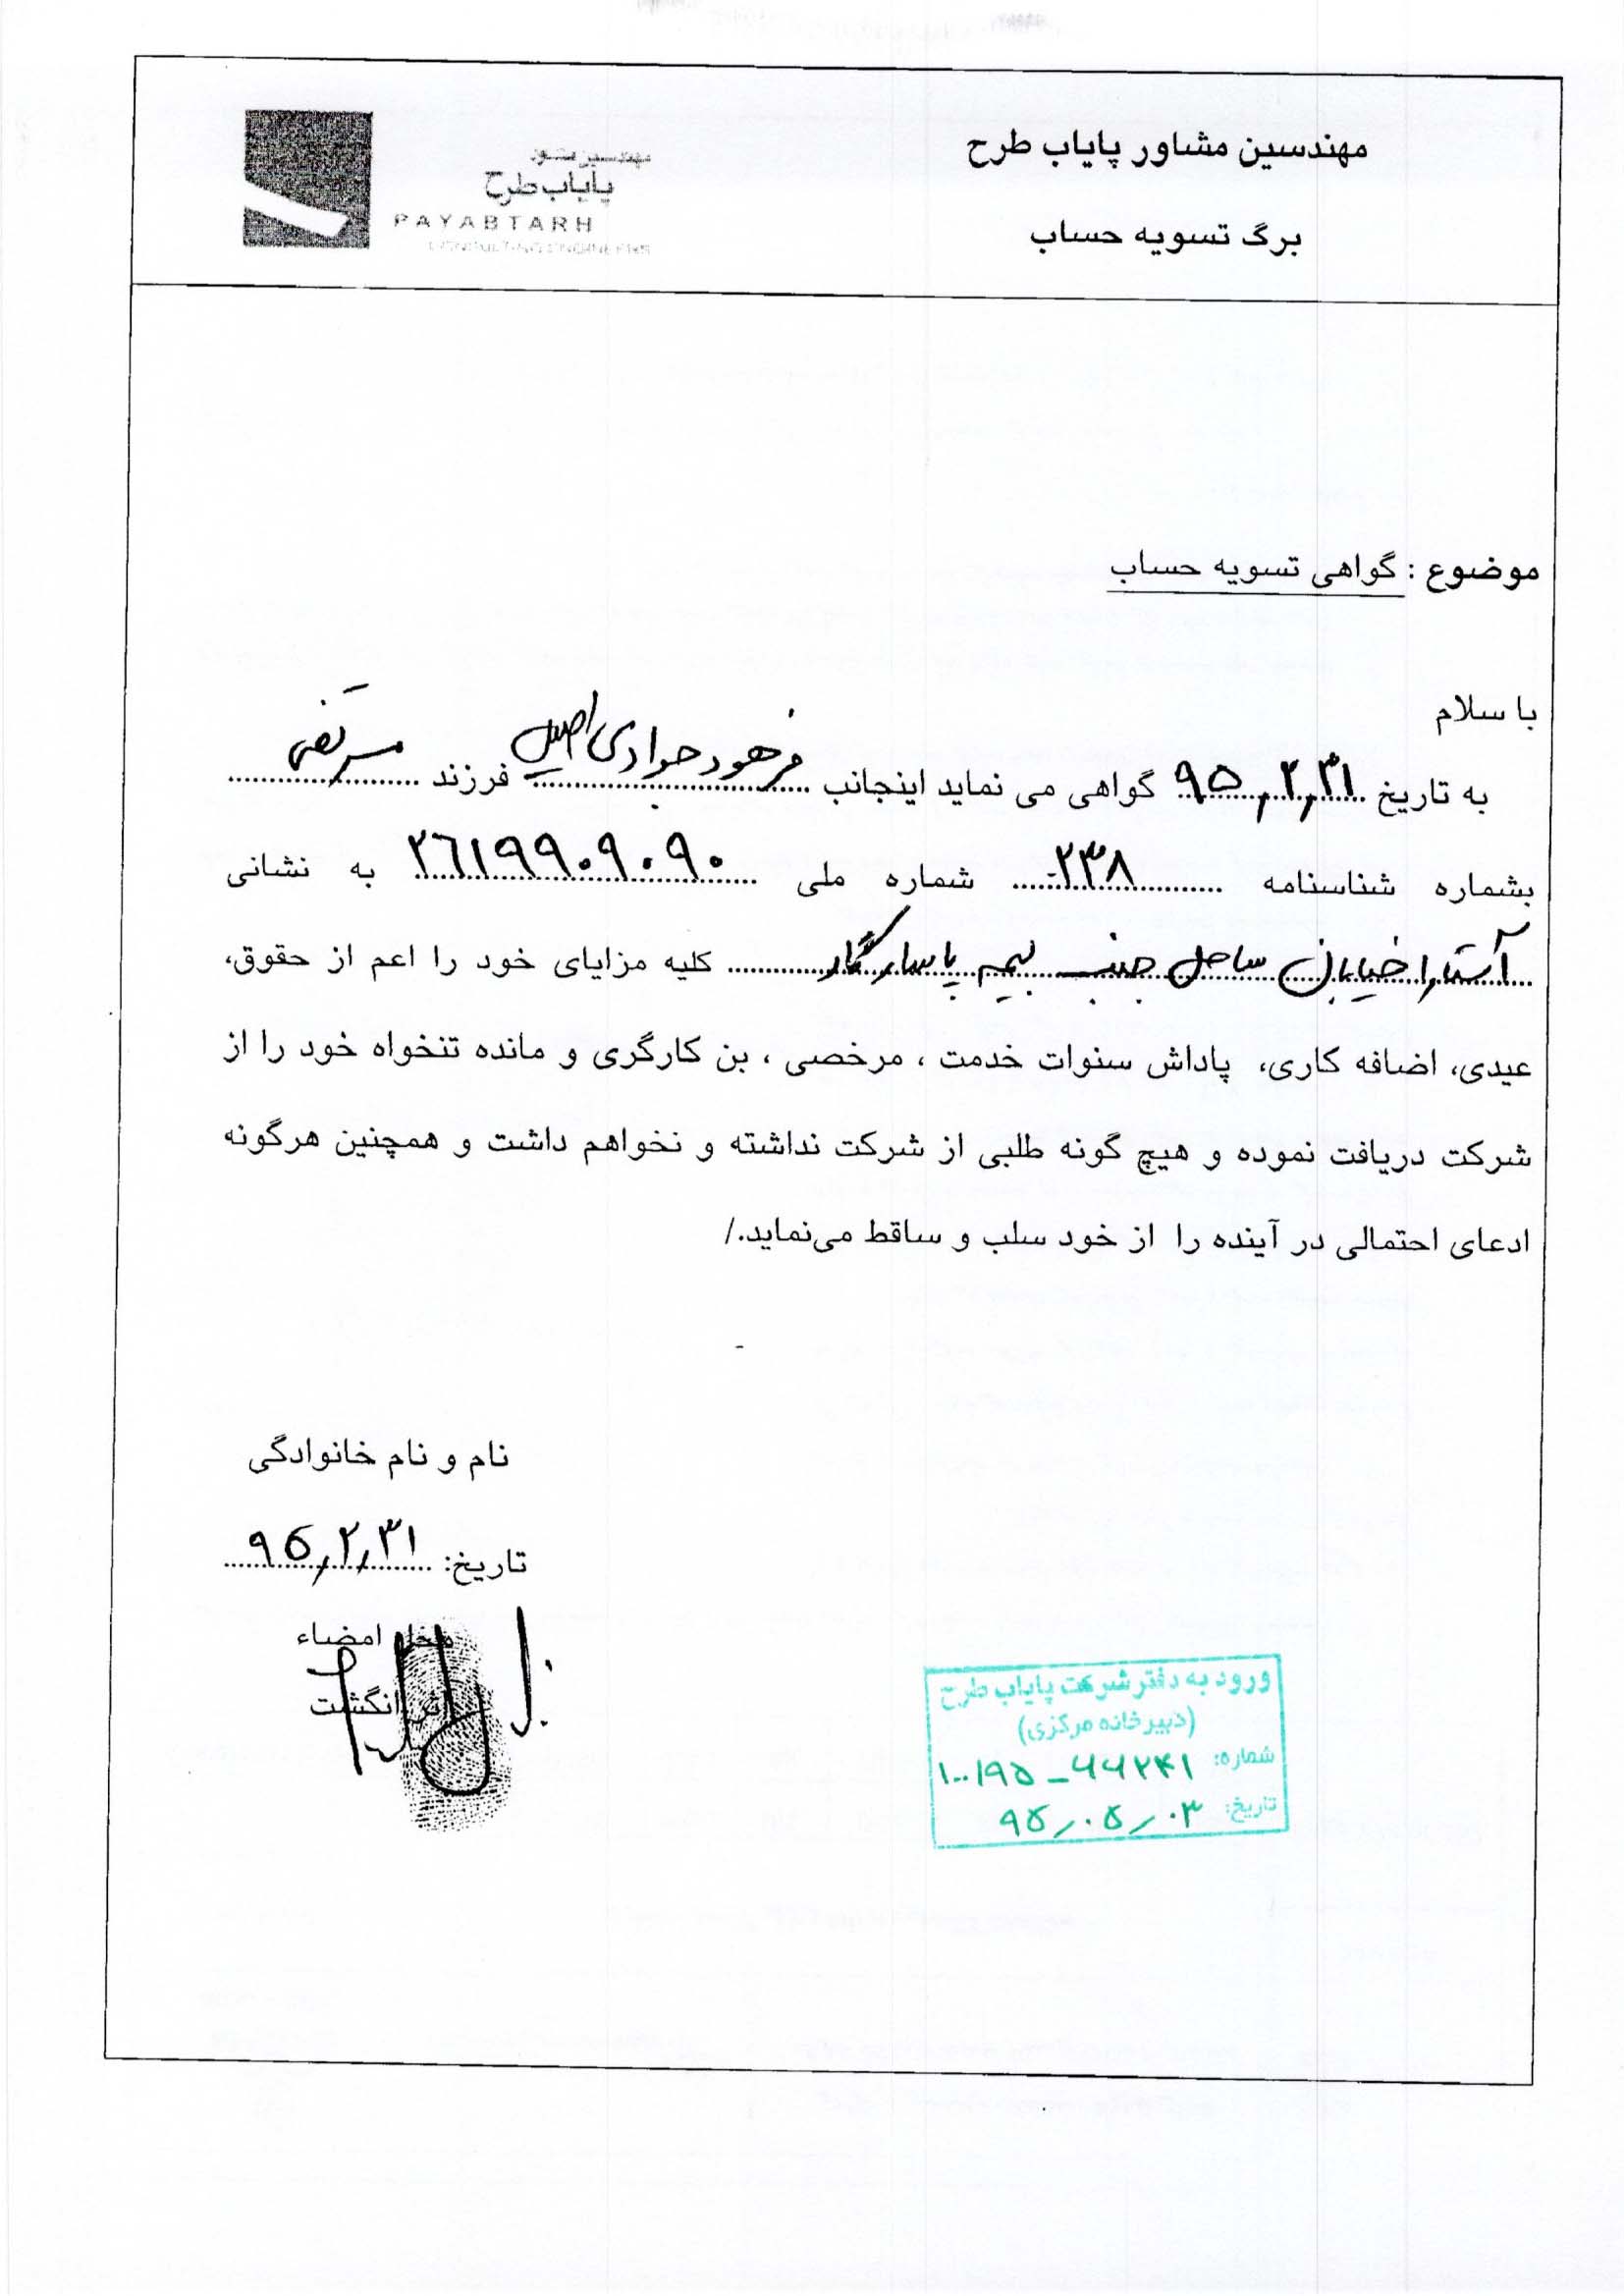 مهندسین مشاور پایاب طرح
برگ تسویه حساب
مهندسین مشاور
پایاب طرح
PAYABTARH
CONSULTING ENGINEERS
موضوع : گواهی تسویه حساب
با سلام
به تاریخ ۹۵,۲,۳۱ گواهی می نماید اینجانب فرهود جوادی اصیل فرزند مرتضی
بشماره شناسنامه ۲۳۸ شماره ملی ۲۶۱۹۹۰۹۰۹۰ به نشانی
آستارا خیابان ساحل جنب بیمه پاسارگاد کلیه مزایای خود را اعم از حقوق،
عیدی، اضافه کاری، پاداش سنوات خدمت ، مرخصی ، بن کارگری و مانده تنخواه خود را از
شرکت دریافت نموده و هیچ گونه طلبی از شرکت نداشته و نخواهم داشت و همچنین هرگونه
ادعای احتمالی در آینده را از خود سلب و ساقط می‌نماید./
نام و نام خانوادگی
تاریخ: ۹۵,۲,۳۱
محل امضاء
اثر انگشت
ورود به دفتر شرکت پایاب طرح
(دبیرخانه مرکزی)
شماره: ۱۰۰/۹۵-۶۶۲۴۱
تاریخ: ۹۵/۰۵/۰۳